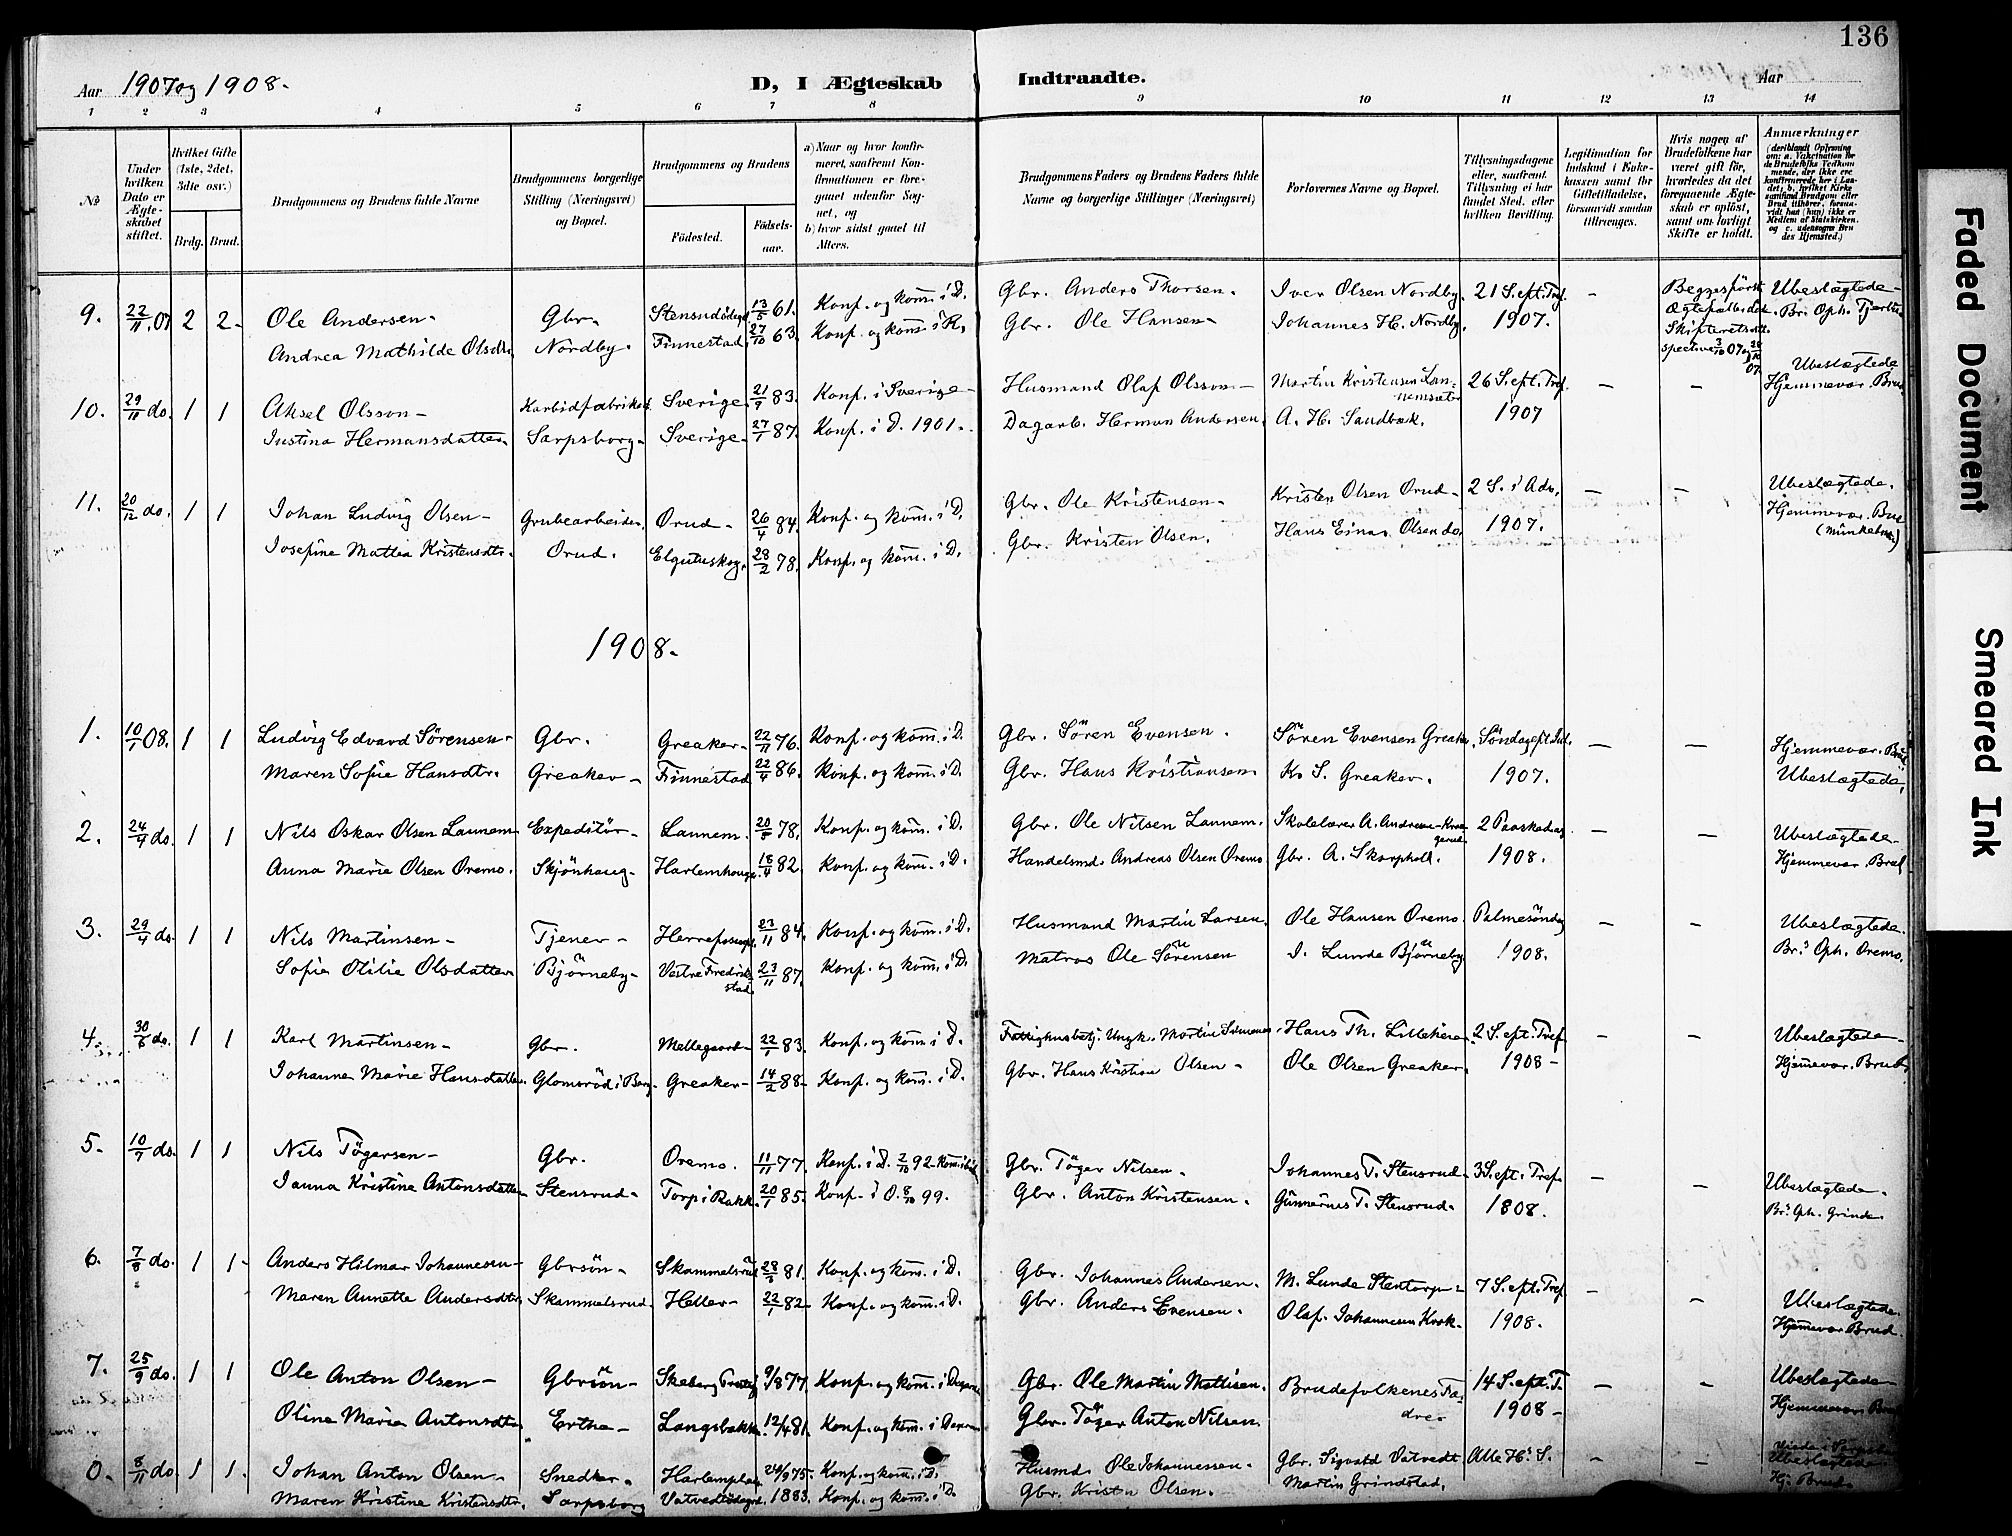 136
Aar 1907 og 1908.
D, I Ægteskab Indtraadte.
Aar
1 2 3 4 5 6 7 8 9 10 11 12 13 14
No
Under hvilken Dato er Ægteskabet stiftet.
Hvilket Gifte (1ste, 2det, 3die osv.)
Brdg. Brud.
Brudgommens og Brudens fulde Navne
Brudgommens borgerlige Stilling (Næringsvei) og Bopæl.
Brudgommens og Brudens
Fødested.
Fødselsaar.
a) Naar og hvor konfirmeret, saafremt Konfirmationen er foregaaet udenfor Sognet, og
b) hvor sidst gaaet til Alters.
Brudgommens Faders og Brudens Faders fulde Navne og borgerlige Stillinger (Næringsvei)
Forlovernes Navne og Bopæl.
Tillysningsdagene eller, saafremt Tillysning ei har fundet Sted, efter hvilken Bevilling.
Legitimation for Indskud i Enkekassen samt for Giftetilladelse, forsaavidt saadan tiltrænges.
Hvis nogen af Brudefolkene har været gift før, hvorledes da det foregaaende Ægteskab er opløst, samt om lovligt Skifte er holdt.
Anmærkninger
9. 22/11 07 2 2 Ole Andersen Gbr. 13/5 61. Konf. og kom. i D. Gbr. Anders Thorsen. Iver Olsen Nordby. 21 S. ept. Tref. – Ubeslægtede
Andrea Mathilde Olsdtr. Nordby. Finnestad 27/10 63. Konf. og kom. i Gbr. Ole Hansen Johannes H. Nordby. 1907.
10. 29/11 do. 1 1 Aksel Olsson Karbidfabrikarb. Sverige. 21/9 83. Konf. i Sverige Husmand Olaf Olsson Martin Kristensen 26 S. ept. Tref. – – Ubeslægtede Hjemmevær. Brud
Justina Hermansdatter Sarpsborg Sverige 27/1 87. Konf. i D. 1901. Dagarb. Herman Andersen, A. H. Sandbæk. 1907
11. 20/12 do. 1 1 Johan Ludvig Olsen Grubearbeider, Orud 26/4 84. Konf. og kom. i D. Gbr. Ole Kristensen Kristen Olsen Orud 2 S. i Adv. – – Ubeslægtede.
Josefine Mattea Kristensdtr. Orud. 28/2 78. Konf. og kom. i D. Gbr. Kristen Olsen. Hans Einar Olsen do. 1907. Hjemmevær. Brud
1908.
1. 10/1 08. 1 1 Ludvig Edvard Sørensen Gbr. Greaker 22/11 76. Konf. og kom. i D. Gbr. Søren Evensen. Søren Evensen Greaker. Søndag ept. Jul. – – Hjemmevær. Brud
Maren Sofie Hansdtr. Greaker Finnestad 22/4 86. Konf. og kom. i D. Gbr. Hans Kristiansen K. S. Greaker. 1907. Ubeslægtede,
2. 24/4 do. 1 1 Nils Oskar Olsen Lannem Expeditør Lannem. 20/5 78. Konf. og kom. i D. Gbr. Ole Nilsen Lannem. Skolelærer A. 2 Paaskedag – – Ubeslægtede
Anna Marie Olsen Oremo. Skjønhaug Harlemhaugen. 18/4 82. Konf. og kom. i D. Handelsmd. Andreas Olsen Oremo Gbr. A. Skarpholt. 1908. Hjemmevær. Brud
3. 29/4 do. 1 1 Nils Martinsen Tjener 23/11 84. Konf. og kom. i D. Husmand Martin Larsen. Ole Hansen Oremo. Palmesøndag – – Ubeslægtede.
Sofie Otilie Olsdatter Bjørneby Vestre Fredrikstad 23/11 87. Konf. og kom. i D. Matros Ole Sørensen J. Lunde Bjørneby 1908. Br.s Oph. Oremo.
4. 30/6 do. 1 1 Karl Martinsen Gbr. Mellegaard 22/1 83. Konf. og kom. i D. Martin Simonsen Hans Th. 2 S. ept. Tref. – – Ubeslægtede
Johanne Marie Hansdatter Glomsrød i Berg. Greaker 14/2 88 Konf. og kom. i D. Gbr. Hans Kristian Olsen Ole Olsen Greaker. 1908 Hjemmevær. Brud
5. 10/7 do. 1 1 Nils Tøgersen Gbr. Oremo. 11/11 77. Konf. i D. 2/10 92. Gbr. Tøger Nilsen Johannes T. Stensrud 3 S. ept. Tref. – – Ubeslægtede.
Janna Kristine Antonsdatter Stensrud Torp i Rakk. 20/1 85. Konf. i O. 8/10 99. Gbr. Anton Kristensen. Gunnerius T. Stensrud. 1808. Br.s Oph. Grinde
6. 7/8 do. 1 1 Anders Hilmar Johannesen Gbrsøn Skammelsrud 28/5 81. Konf. og kom. i D. Gbr. Johannes Andersen. M. Lunde Stentorp 7 S. ept. Tref. – – Ubeslægtede.
Maren Annette Andersdtr. Skammelsrud. Heller 22/1 82 Konf. og kom. i D. Gbr. Anders Evensen. Olaf Johannesen Krok 1908. Hjemmevær Brud.
7. 25/9 do. 1 1 Ole Anton Olsen Gbrsøn 9/8 77. Konf. og kom. i Gbr. Ole Martin Mattisen. Brudefolkenes Fædre 14 S. ept. T. – – Ubeslægtede
Oline Marie Antonsdtr. Ertha Langsbakke 12/4 81. Konf. og kom. i Gbr. Tøger Anton Nilsen. 1908 Hjemmevær Brud
8/11 do. 1 1. Johan Anton Olsen Snedker 24/9 75. Konf. og kom. i D. Husmd. Ole Johannessen. Gbr. Sigvald Vatvedt Alle H. S. – – Ubeslægtede
Maren Kristine Kristensdtr. Sarpsborg 1883. Konf. og kom. i D. Gbr. Kristen Olsen. Martin Grindstad. Hj. Brud.
Faded Document
Smeared Ink